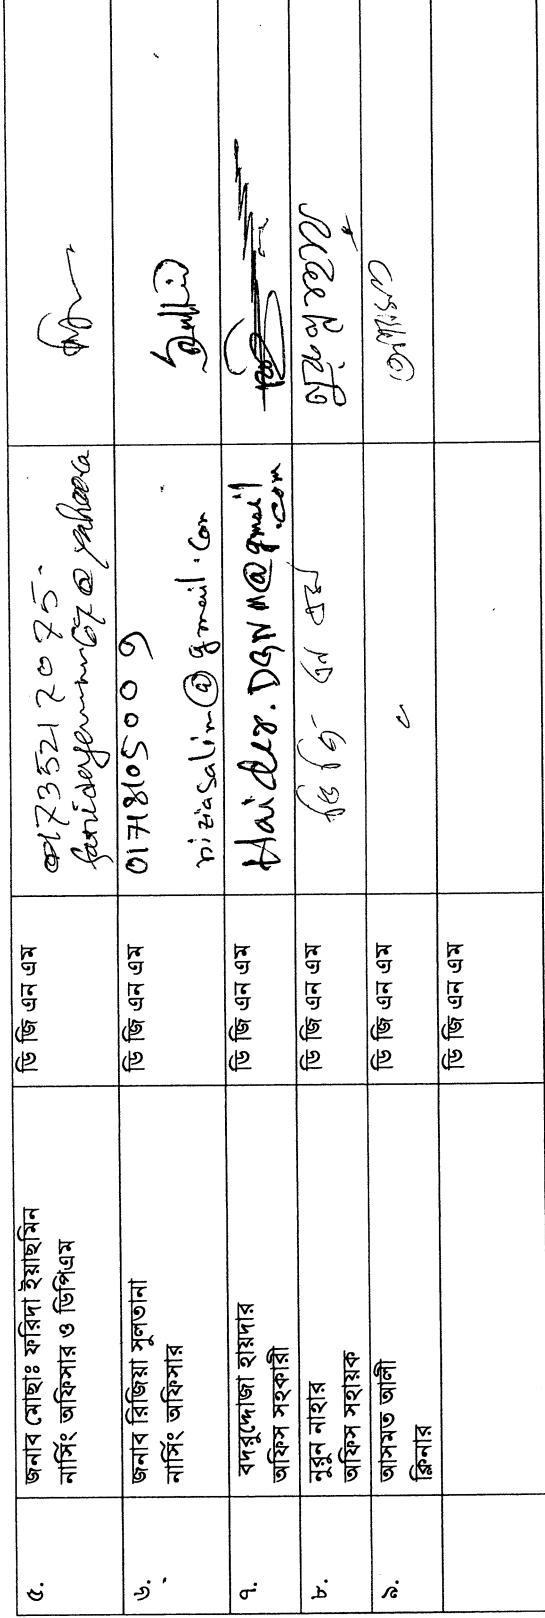 ৫.
জনাব মোছাঃ ফরিদা ইয়াছমিন
নার্সিং অফিসার ও ডিপিএম
ডি জি এন এম
01735217075.
৬.
জনাব রিজিয়া সুলতানা
নার্সিং অফিসার
ডি জি এন এম
01718105009
riziasalim@gmail.com
৭.
বদরুদ্দোজা হায়দার
অফিস সহকারী
ডি জি এন এম
Haider.DGNM@gmail
.com
৮.
নুরুন নাহার
অফিস সহায়ক
ডি জি এন এম
ডি জি এন এম
৯.
আসমত আলী
ক্লিনার
ডি জি এন এম
ডি জি এন এম